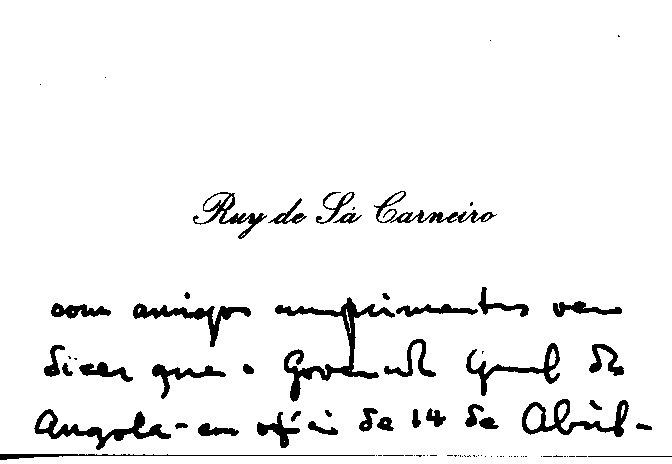 Ruy de Sá Carneiro
com amigos cumprimentos vem
dizer que o Governador Geral de
Angola - em ofício de 14 de Abril -